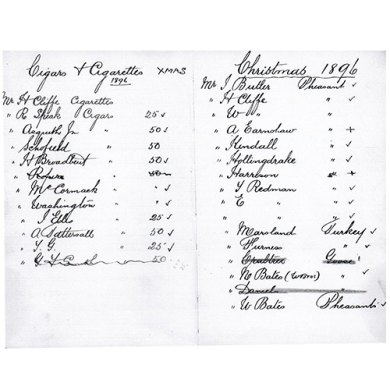 Cigars & Cigarettes XMAS
1896
Mr H Cliffe Cigarettes
" R Speak Cigars 25 ✓
" Asquith Jr " 50 ✓
" Schofield " 50
" H Broadbent " 50 ✓
" " 50
" McCormack " " ✓
" Washington " " ✓
" J Ellis " 25 ✓
" A Tattersall " 50 ✓
" T. G. " 25 ✓
" 50
Christmas 1896
Mr J Butler Pheasant ✓
" H Cliffe " ✓
" W " " ✓
" A Earnshaw " +
" Kendall " ✓
" Hollingdrake " ✓
" Harrison " +
" J Redman " ✓
" E " " ✓
" " ✓
" Marsland Turkey ✓
" Furness " ✓
" Crabtree Goose
" N Bates (Wom) " ✓
" Daniel
" W Bates Pheasants ✓